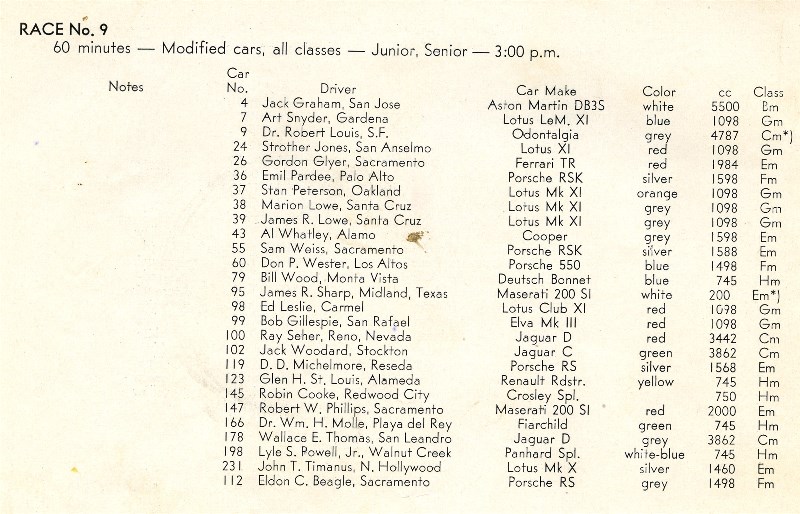 RACE No. 9
60 minutes — Modified cars, all classes — Junior, Senior — 3:00 p.m.
Notes Car No. Driver Car Make Color cc Class
4 Jack Graham, San Jose Aston Martin DB3S white 5500 Bm
7 Art Snyder, Gardena Lotus LeM. XI blue 1098 Gm
9 Dr. Robert Louis, S.F. Odontalgia grey 4787 Cm*)
24 Strother Jones, San Anselmo Lotus XI red 1098 Gm
26 Gordon Glyer, Sacramento Ferrari TR red 1984 Em
36 Emil Pardee, Palo Alto Porsche RSK silver 1598 Fm
37 Stan Peterson, Oakland Lotus Mk XI orange 1098 Gm
38 Marion Lowe, Santa Cruz Lotus Mk XI grey 1098 Gm
39 James R. Lowe, Santa Cruz Lotus Mk XI grey 1098 Gm
43 Al Whatley, Alamo Cooper grey 1598 Em
55 Sam Weiss, Sacramento Porsche RSK silver 1588 Em
60 Don P. Wester, Los Altos Porsche 550 blue 1498 Fm
79 Bill Wood, Monta Vista Deutsch Bonnet blue 745 Hm
95 James R. Sharp, Midland, Texas Maserati 200 SI white 200 Em*)
98 Ed Leslie, Carmel Lotus Club XI red 1098 Gm
99 Bob Gillespie, San Rafael Elva Mk III red 1098 Gm
100 Ray Seher, Reno, Nevada Jaguar D red 3442 Cm
102 Jack Woodard, Stockton Jaguar C green 3862 Cm
119 D. D. Michelmore, Reseda Porsche RS silver 1568 Em
123 Glen H. St. Louis, Alameda Renault Rdstr. yellow 745 Hm
145 Robin Cooke, Redwood City Crosley Spl. 750 Hm
147 Robert W. Phillips, Sacramento Maserati 200 SI red 2000 Em
166 Dr. Wm. H. Molle, Playa del Rey Fiarchild green 745 Hm
178 Wallace E. Thomas, San Leandro Jaguar D grey 3862 Cm
198 Lyle S. Powell, Jr., Walnut Creek Panhard Spl. white-blue 745 Hm
231 John T. Timanus, N. Hollywood Lotus Mk X silver 1460 Em
112 Eldon C. Beagle, Sacramento Porsche RS grey 1498 Fm